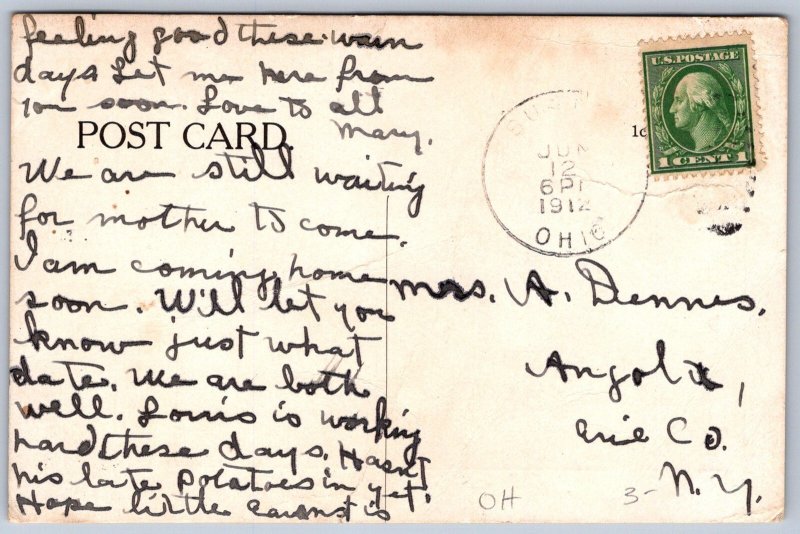 feeling good these warm
days Let me here from
you soon. Love to all
Mary.
POST CARD.
We are still waiting
for mother to come.
I am coming home
soon. Will let you
know just what
date. We are both
well. Louis is working
hard these days. Hasn't
his late potatoes in yet.
Hope little is
JUN
12
6 P
1912
OHIO
U.S. POSTAGE
1 CENT 1
Mrs. A. Dennes.
Angola,
Erie Co.
N.Y.
OH
3-